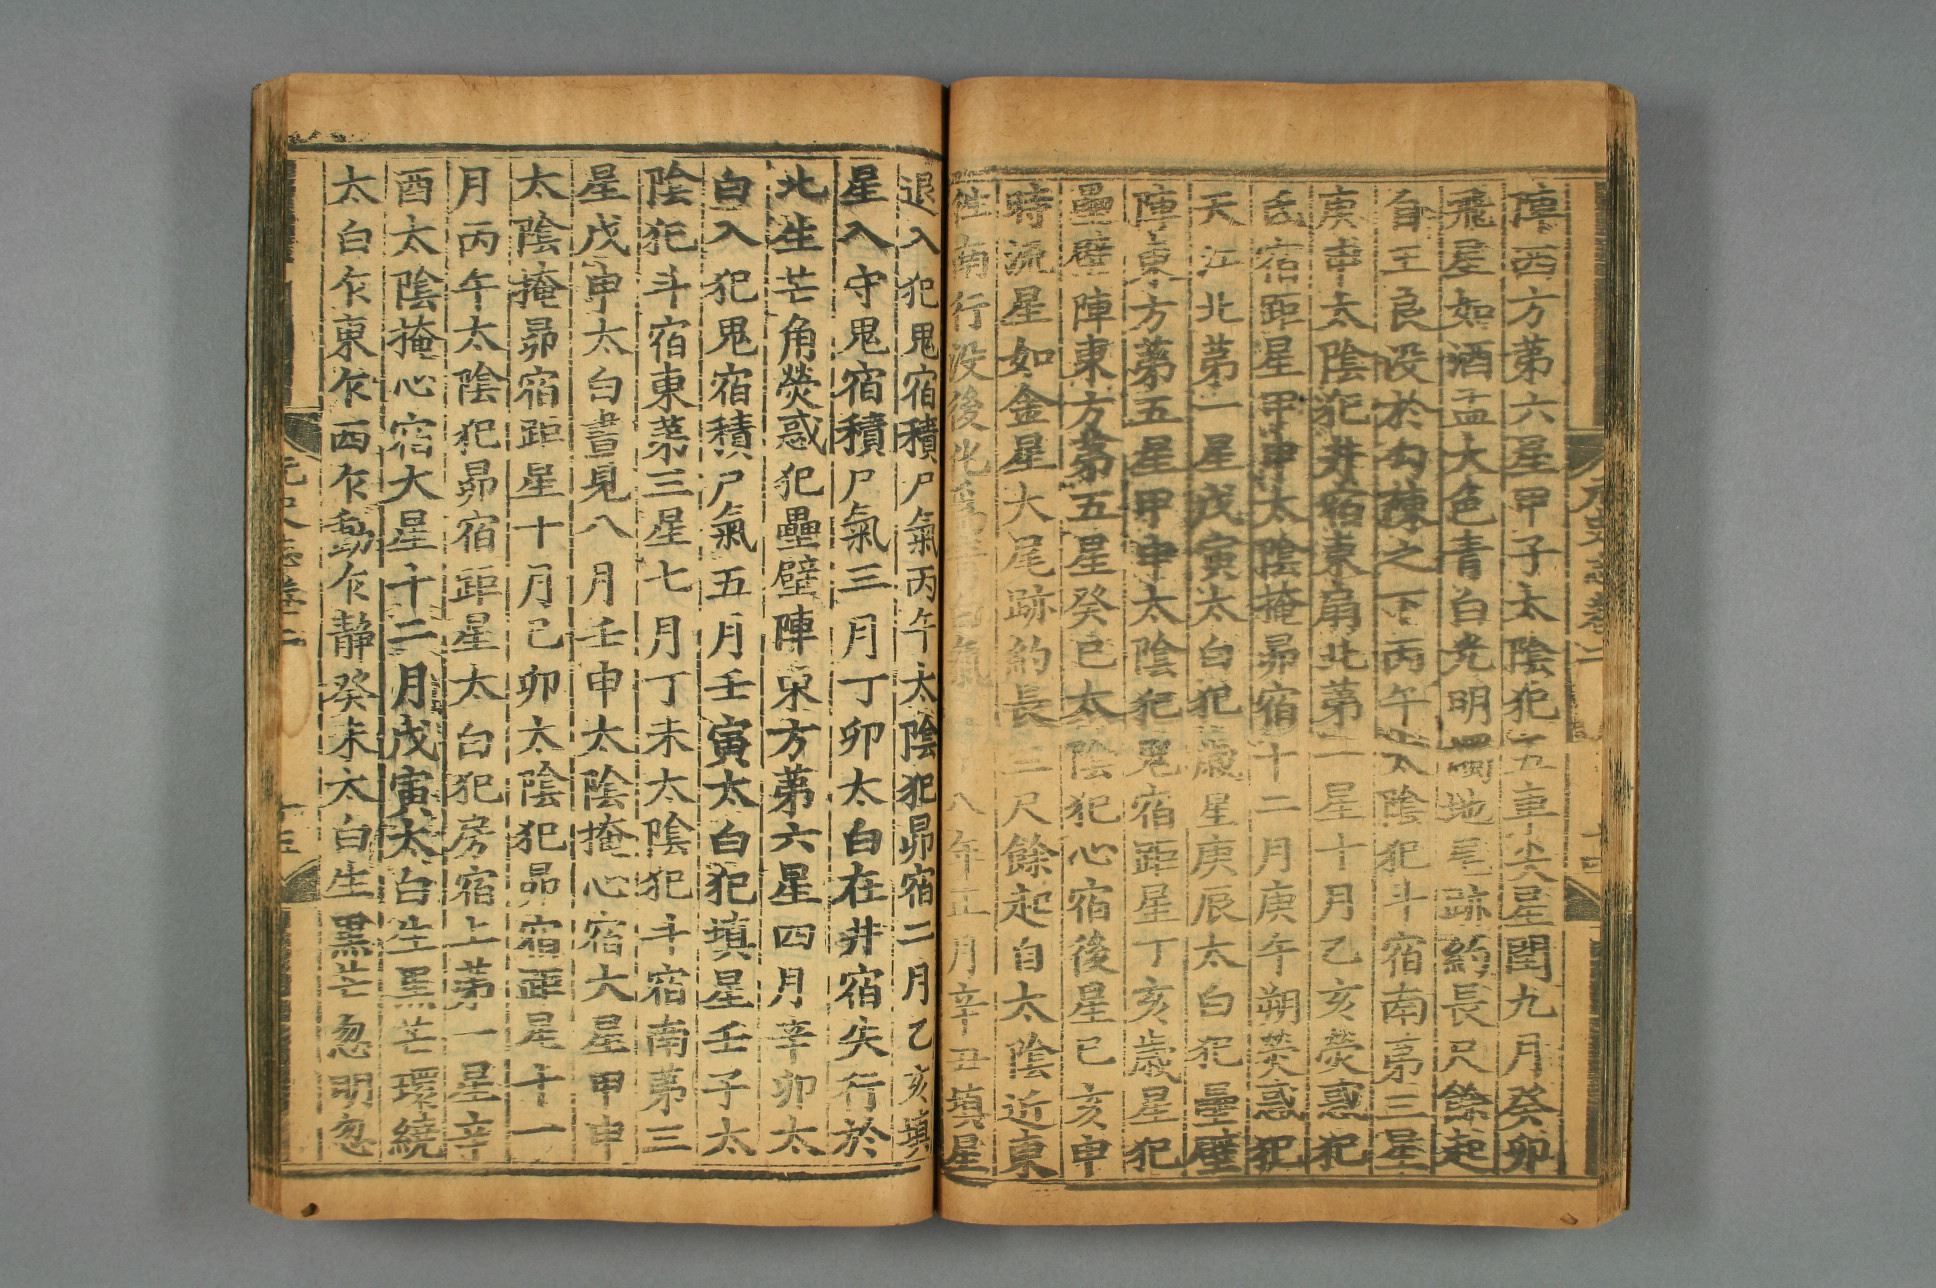 元史志卷二
十四
陣西方第六星甲子太陰犯五車尖星閏九月癸卯
飛星如酒盂大色青白光明燭地尾跡約長尺餘起
自王良沒於勾陳之下丙午太陰犯斗宿南第三星
庚申太陰犯井宿東扇北第一星十月乙亥熒惑犯
氐宿距星甲申太陰掩昴宿十二月庚午朔熒惑犯
天江北第一星戊寅太白犯歲星庚辰太白犯壘壁
陣東方第五星甲申太陰犯鬼宿距星丁亥歲星犯
壘壁陣東方第五星癸巳太陰犯心宿後星己亥申
時流星如金星大尾跡約長三尺餘起自太陰近東
徃南行沒後化爲青白氣 八年正月辛丑填星
退入犯鬼宿積尸氣丙午太陰犯昴宿二月乙亥填
星入守鬼宿積尸氣三月丁卯太白在井宿失行於
北生芒角熒惑犯壘壁陣東方第六星四月辛卯太
白入犯鬼宿積尸氣五月壬寅太白犯填星壬子太
陰犯斗宿東第三星七月丁未太陰犯斗宿南第三
星戊申太白晝見八月壬申太陰掩心宿大星甲申
太陰掩昴宿距星十月己卯太陰犯昴宿距星十一
月丙午太陰犯昴宿距星太白犯房宿上第一星辛
酉太陰掩心宿大星十二月戊寅太白生黑芒環繞
太白乍東乍西乍動乍靜癸未太白生黑芒忽明忽
元史志卷二
十五